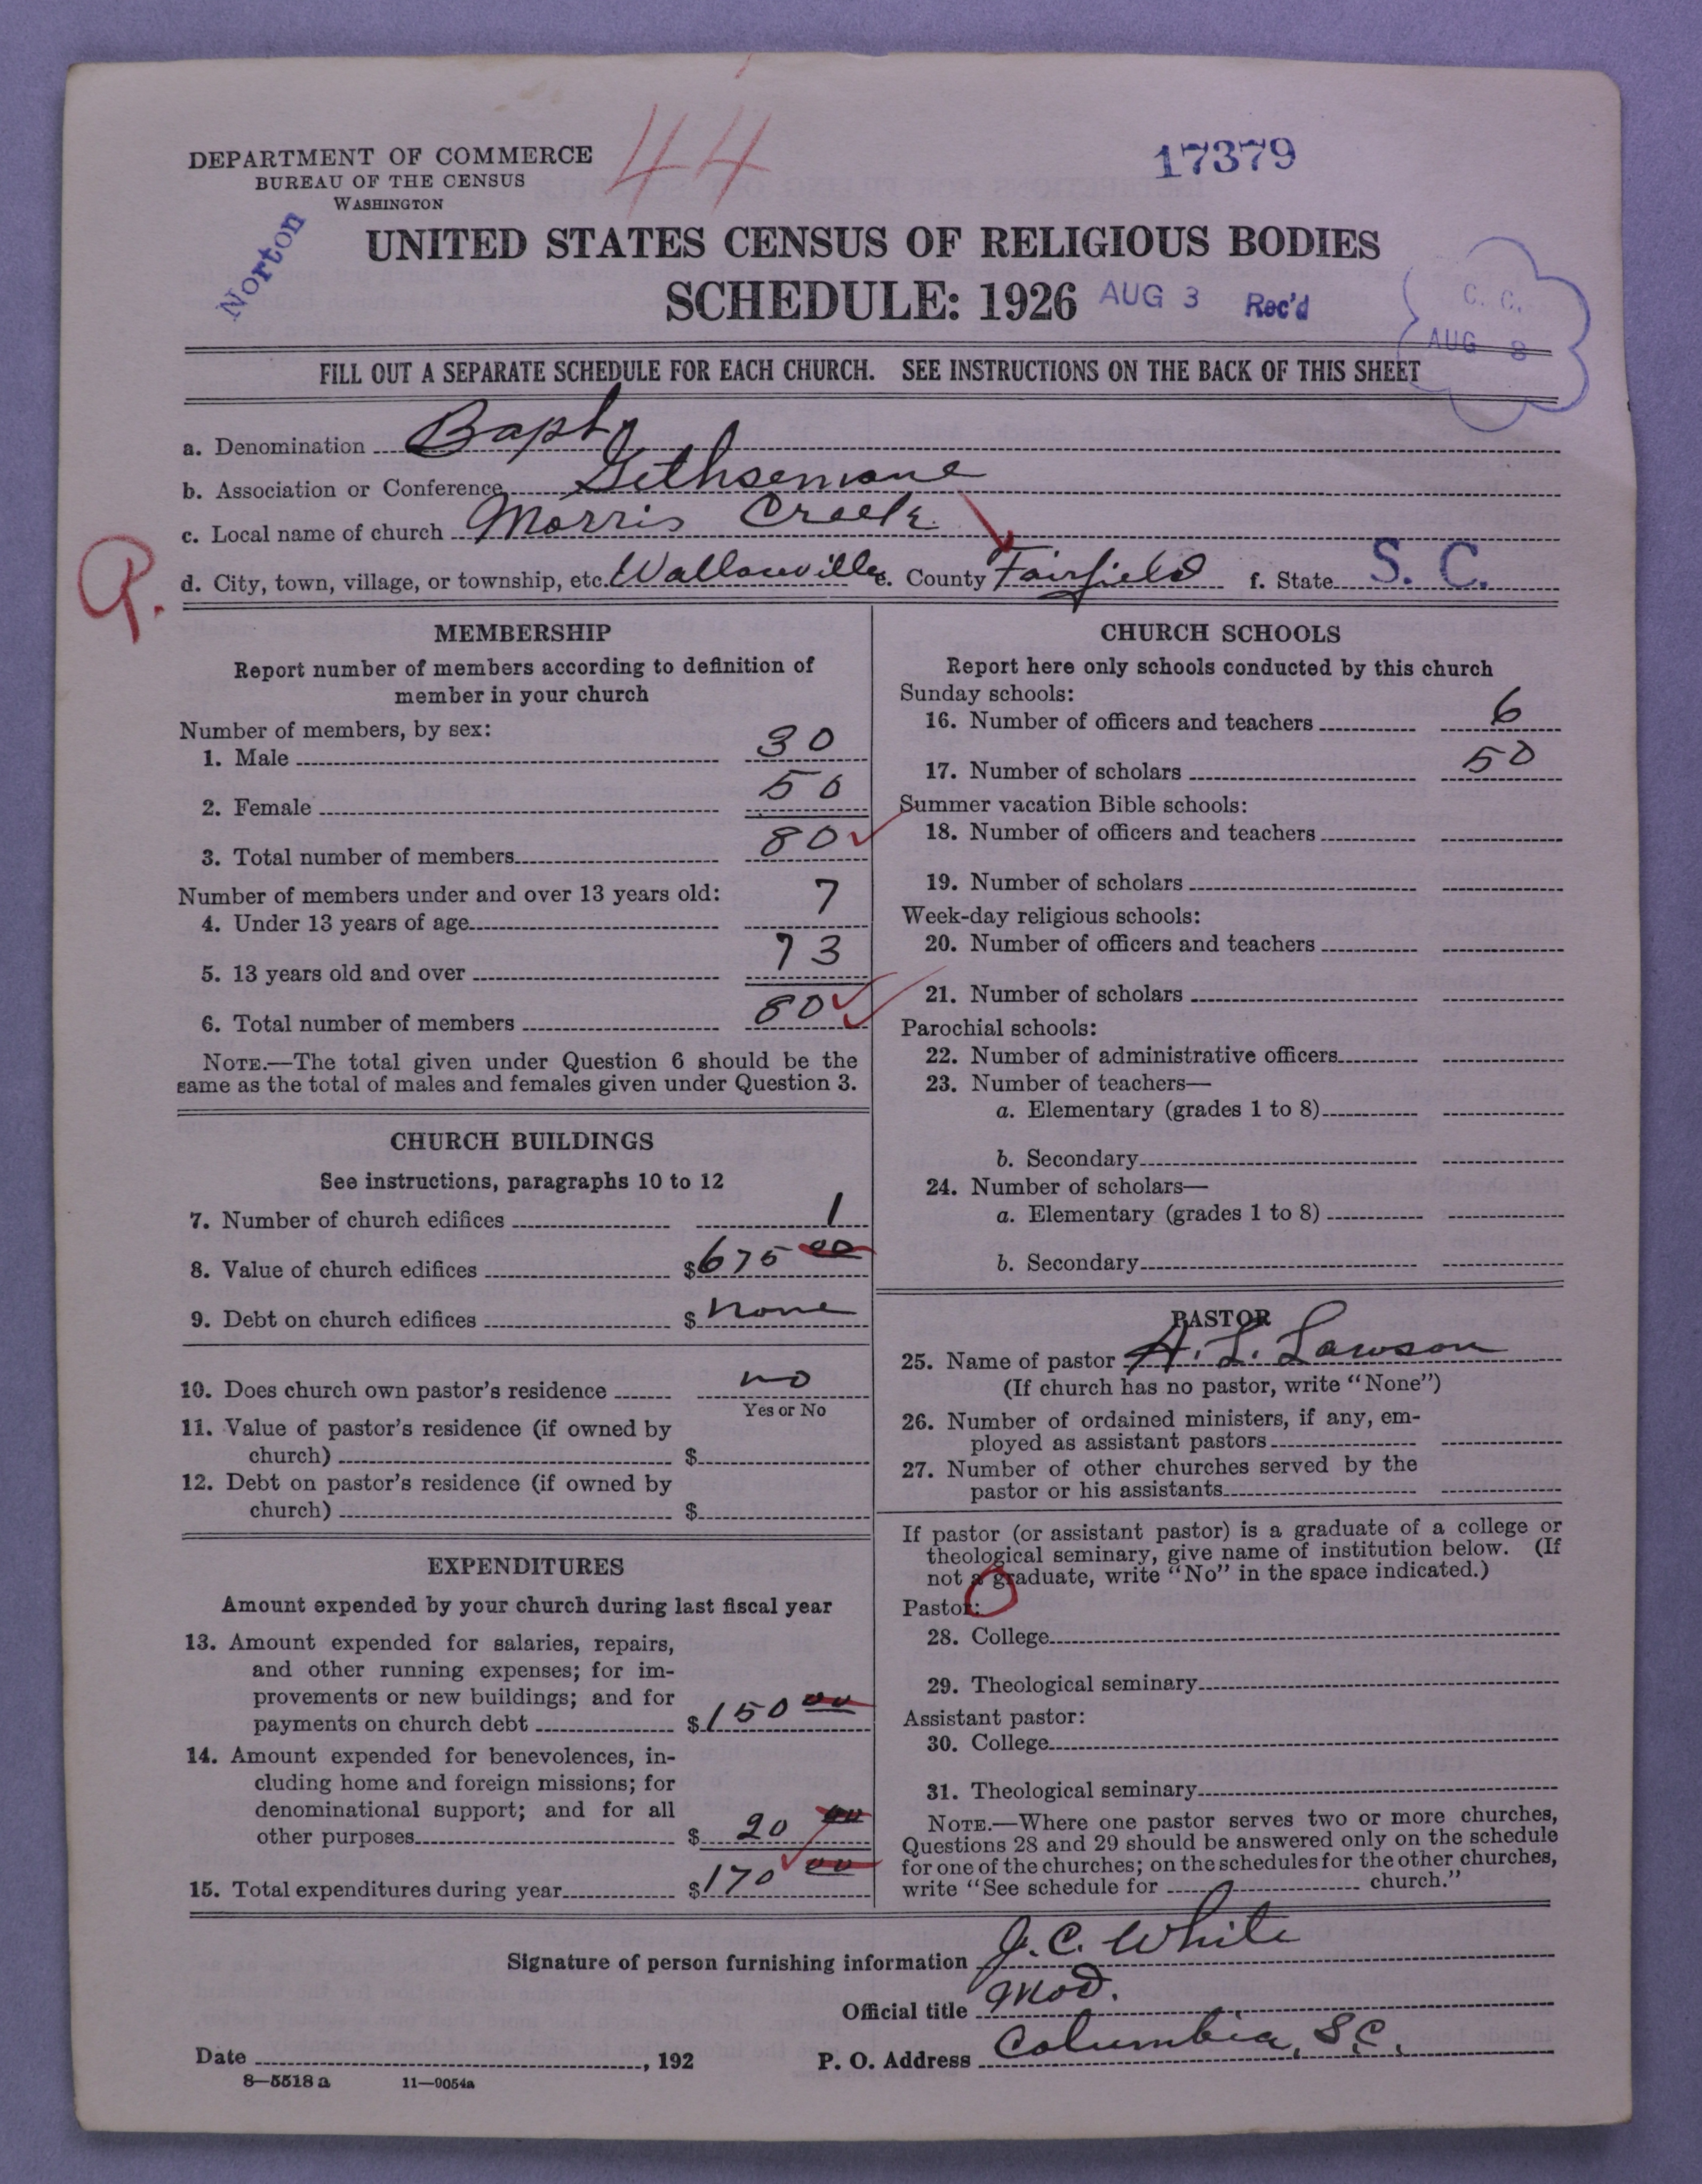 44
17379
DEPARTMENT OF COMMERCE
BUREAU OF THE CENSUS
WASHINGTON
Norton
UNITED STATES CENSUS OF RELIGIOUS BODIES
SCHEDULE: 1926 AUG 3 Rec'd
C. C.
AUG 8
FILL OUT A SEPARATE SCHEDULE FOR EACH CHURCH. SEE INSTRUCTIONS ON THE BACK OF THIS SHEET
a. Denomination Bapt
b. Association or Conference Gethsemane
c. Local name of church Morris Creek
d. City, town, village, or township, etc. Wallaceville e. County Fairfield f. State S. C.
MEMBERSHIP
Report number of members according to definition of
member in your church
Number of members, by sex:
1. Male 30
2. Female 50
3. Total number of members 80
Number of members under and over 13 years old:
4. Under 13 years of age 7
5. 13 years old and over 73
6. Total number of members 80
NOTE.—The total given under Question 6 should be the
same as the total of males and females given under Question 3.
CHURCH BUILDINGS
See instructions, paragraphs 10 to 12
7. Number of church edifices 1
8. Value of church edifices $675 00
9. Debt on church edifices $ none
10. Does church own pastor's residence no
Yes or No
11. Value of pastor's residence (if owned by
church) $
12. Debt on pastor's residence (if owned by
church) $
EXPENDITURES
Amount expended by your church during last fiscal year
13. Amount expended for salaries, repairs,
and other running expenses; for im-
provements or new buildings; and for
payments on church debt $150 00
14. Amount expended for benevolences, in-
cluding home and foreign missions; for
denominational support; and for all
other purposes $ 20 00
15. Total expenditures during year $170 00
CHURCH SCHOOLS
Report here only schools conducted by this church
Sunday schools:
16. Number of officers and teachers 6
17. Number of scholars 50
Summer vacation Bible schools:
18. Number of officers and teachers
19. Number of scholars
Week-day religious schools:
20. Number of officers and teachers
21. Number of scholars
Parochial schools:
22. Number of administrative officers
23. Number of teachers—
a. Elementary (grades 1 to 8)
b. Secondary
24. Number of scholars—
a. Elementary (grades 1 to 8)
b. Secondary
PASTOR
25. Name of pastor A. L. Lawson
(If church has no pastor, write "None")
26. Number of ordained ministers, if any, em-
ployed as assistant pastors
27. Number of other churches served by the
pastor or his assistants
If pastor (or assistant pastor) is a graduate of a college or
theological seminary, give name of institution below. (If
not a graduate, write "No" in the space indicated.)
Pastor:
28. College
29. Theological seminary
Assistant pastor:
30. College
31. Theological seminary
NOTE.—Where one pastor serves two or more churches,
Questions 28 and 29 should be answered only on the schedule
for one of the churches; on the schedules for the other churches,
write "See schedule for church."
Signature of person furnishing information J. C. White
Official title Mod.
Date , 192 P. O. Address Columbia, S.C.
8—5518 a 11—9054a